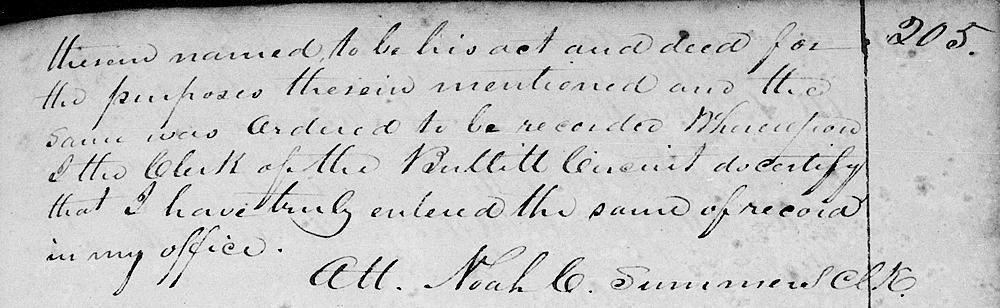 205.
therein named, to be his act and deed for
the purposes therein mentioned and the
same was Ordered to be recorded Whereupon
I the Clerk of the Bullitt Circuit do certify
that I have truly entered the same of record
in my office.
Att. Noah C. Summers Clk.